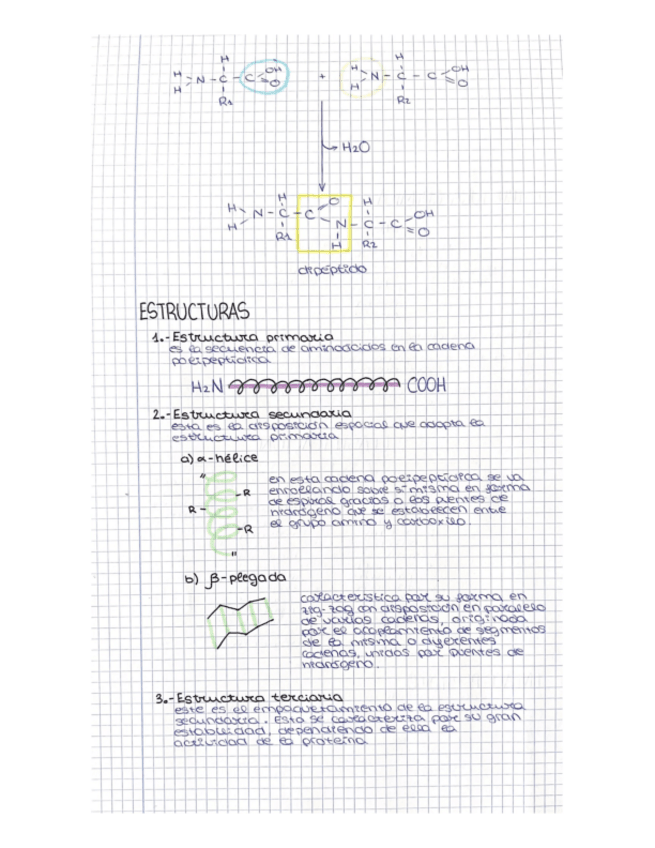 H H
H H
N - C - C OH O + N - C - C OH O
H R1 H R2
H2O
H O H
H N - C - C N - C - C OH O
H R1 H R2
dipéptido
ESTRUCTURAS
1.-Estructura primaria
es la secuencia de aminoácidos en la cadena
polipeptídica
H2N COOH
2.-Estructura secundaria
esta es la disposición espacial que adopta la
estructura primaria
a) α-hélice
en esta cadena polipeptídica se va
enrollando sobre sí misma en forma
de espiral gracias a los puentes de
hidrógeno que se establecen entre
el grupo amino y carboxilo.
-R
R-
-R
b) β-plegada
característica por su forma en
zig-zag con disposición en paralelo
de varias cadenas, originada
por el acoplamiento de segmentos
de la misma o diferentes
cadenas, unidas por puentes de
hidrógeno.
3.-Estructura terciaria
este es el empaquetamiento de la estructura
secundaria. Esta se caracteriza por su gran
estabilidad, dependiendo de ella la
actividad de la proteína